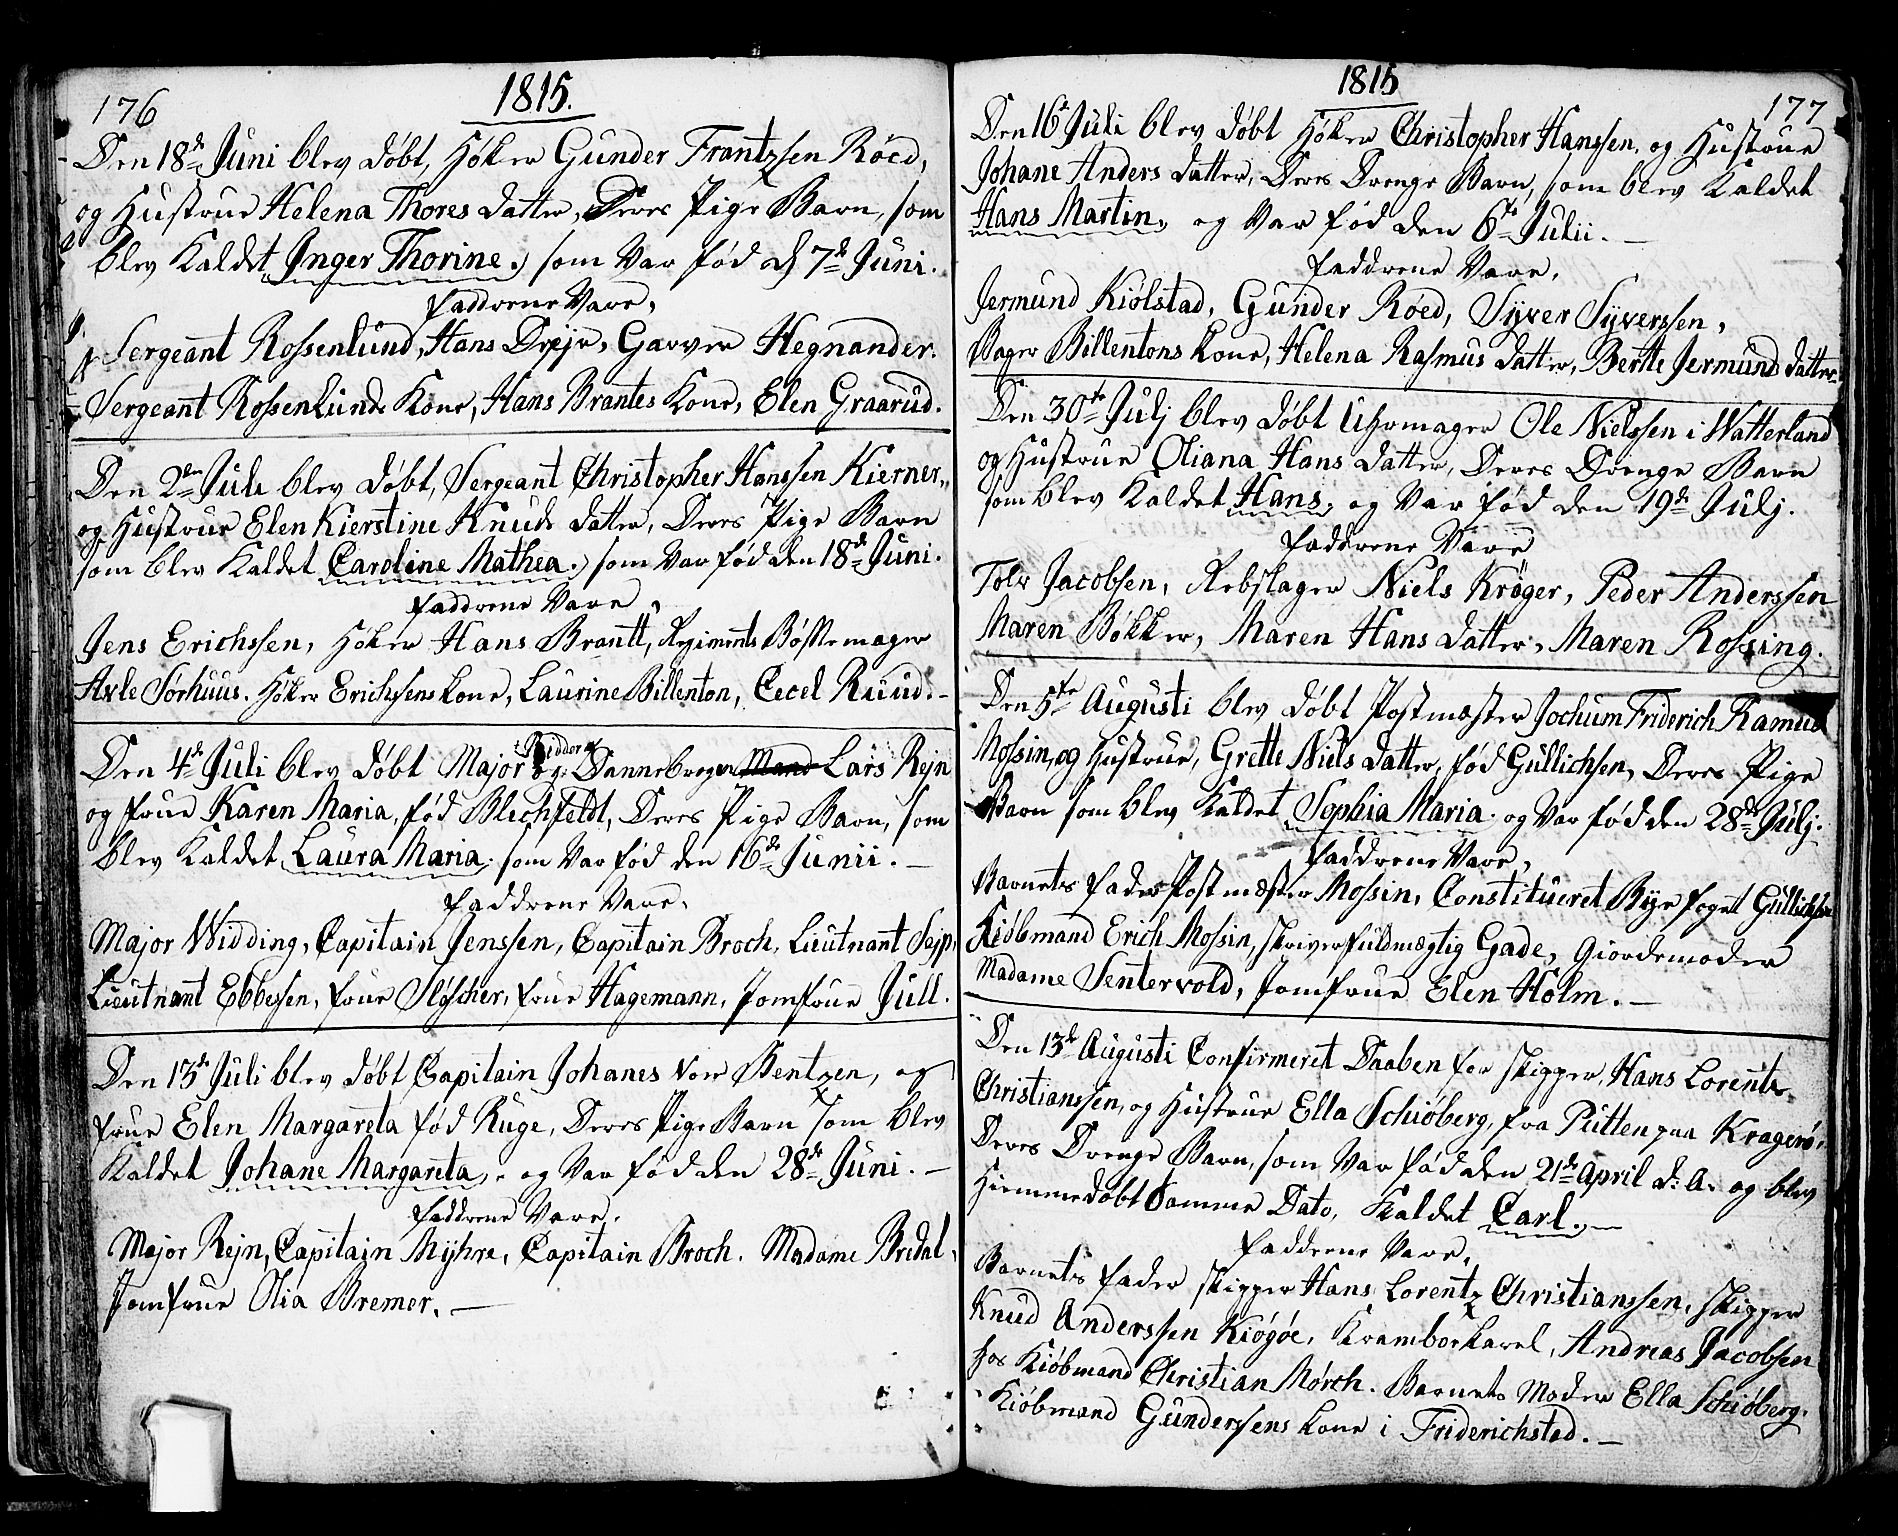 176
1815.
Den 18de Juni blev døbt, Høker Gunder Frantzsen Röed,
og Hustrue Helena Thores datter, Deres Pige Barn, som
blev Kaldet Inger Thorine, som Var fød d 7de Juni.
Faddrene Vare,
Sergeant Rossenlund, Hans Dreje, Garver Hegnander.
Sergeant Rossenlunds Kone, Hans Brantes Kone, Elen Graarud.
Den 2den Juli blev døbt, Sergeant Christopher Hanssen Kierner,
og Hustrue Elen Kierstine Knuds datter, Deres Pige Barn
som blev Kaldet Caroline Mathea, som Var fød den 18de Juni.
Faddrene Vare,
Jens Erichssen, Høker Hans Brantt, Regiments Bøssemager
Axle Sørhuus. Høker Erichsens Kone, Laurine Billenton, Cecel Ruud.
Den 4de Juli blev døbt Major og Ridder af Dannebroge Mand Lars Rejn
og Frue Karen Maria, fød Blechfeldt, Deres Pige Barn, som
blev Kaldet Laura Maria, som Var fød den 16de Junii.
Faddrene Vare,
Major Widding, Capitain Jenssen, Capitain Broch, Lieutnant Sejp,
Lieutnant Ebbessen, Frue Sløscher, Frue Hagemann, Jomfrue Jull.
Den 13de Juli blev døbt Capitain Johanes Vor Bentzen, og
Frue Elen Margareta fød Ruge, Deres Pige Barn som blev
Kaldet Johane Margareta, og Var fød den 28de Juni.
Faddrene Vare.
Major Rejn, Capitain Myhre, Capitain Broch. Madame Bredal,
Jomfrue Olia Bremer.
1815
177
Den 16de Juli blev døbt Høker Christopher Hanssen, og Hustrue
Johane Anders datter, Deres Drenge Barn, som blev Kaldet
Hans Martin, og Var fød den 6te Julii.
Faddrene Vare,
Jermund Kiölstad, Gunder Röed, Syver Syverssen,
Bager Billentons Kone, Helena Rasmus datter, Berthe Jermunds datter
Den 30te Julj blev døbt Uhrmager Ole Nielssen i Watterland
og Hustrue Oliana Hans datter, Deres Drenge Barn
som blev Kaldet Hans, og Var fød den 19de Julj.
Faddrene Vare
Tolv Jacobsen, Rebslager Niels Krøger, Peder Anderssen
Maren Bøkker, Maren Hans datter, Maren Rossing.
Den 5te Augusti blev døbt Postmæster Jochum Friderich Ramus
Mossin, og Hustrue, Grette Niels datter, fød Gullichsen, Deres Pige
Barn som blev Kaldet Sophia Maria. og Var fød den 28de Julj.
Faddrene Vare,
Barnets Fader Postmæster Mossin, Constitueret Bye foget Gullichsen
Kiöbmand Erich Mossin, Skriverfuldmægtig Gade, Giordemoder
Madame Sentervold, Jomfrue Elen Holm.
Den 13de Augusti Confirmeret Daaben for Skipper, Hans Lorentz
Christianssen, og Hustrue Ella Schiöberg, fra Putten paa Kragerö,
Deres Drenge Barn, som Var fød den 21de April d: A. og blev
Hiemmedøbt samme Dato, Kaldet Carl.
Faddrene Vare,
Barnets Fader Skipper Hans Lorentz Christianssen, Skipper
Knud Anderssen Kiögöe, Kramborkarel, Andreas Jacobsen
hos Kiöbmand Christian Mörch. Barnets Moder Ella Schiöberg.
Kiöbmand Gunderssens Kone i Friderichstad.